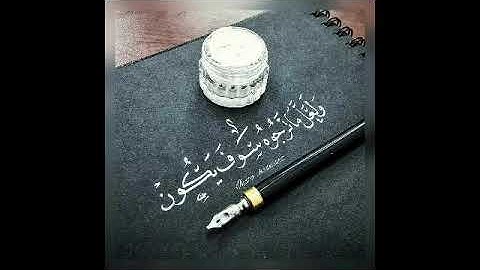 وَلَعَلَّ مَا نَرْجُوهُ سَوْفَ يَكُونُ